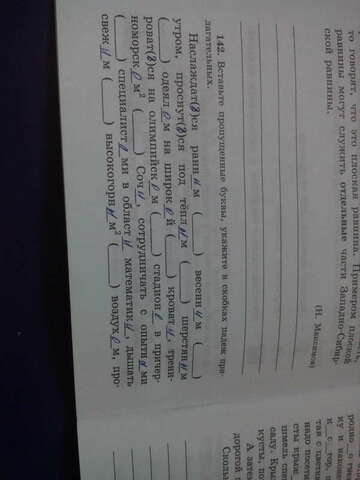 то говорят, что это плоская равнина. Примером плоской
равнины могут служить отдельные части Западно-Сибир-
ской равнины.
(Н. Максимов)
142. Вставьте пропущенные буквы, укажите в скобках падеж при-
лагательных.
Наслаждат(ь)ся ранним ( ) весенним ( )
утром, проснут(ь)ся под тёплым ( ) шерстяным
( ) одеялом на широкой ( ) кровати, трени-
роват(ь)ся на олимпийском ( ) стадионе в причер-
номорском² ( ) Сочи, сотрудничать с опытными
( ) специалистами в области математики, дышать
свежим ( ) высокогорным² ( ) воздухом, про-
родно
ку и навощ
к с гор,
тая с цветк
надо посети
сты крыл
шмель спе
саду. Кры
кусты, по
А зате
дорогой
Сколь